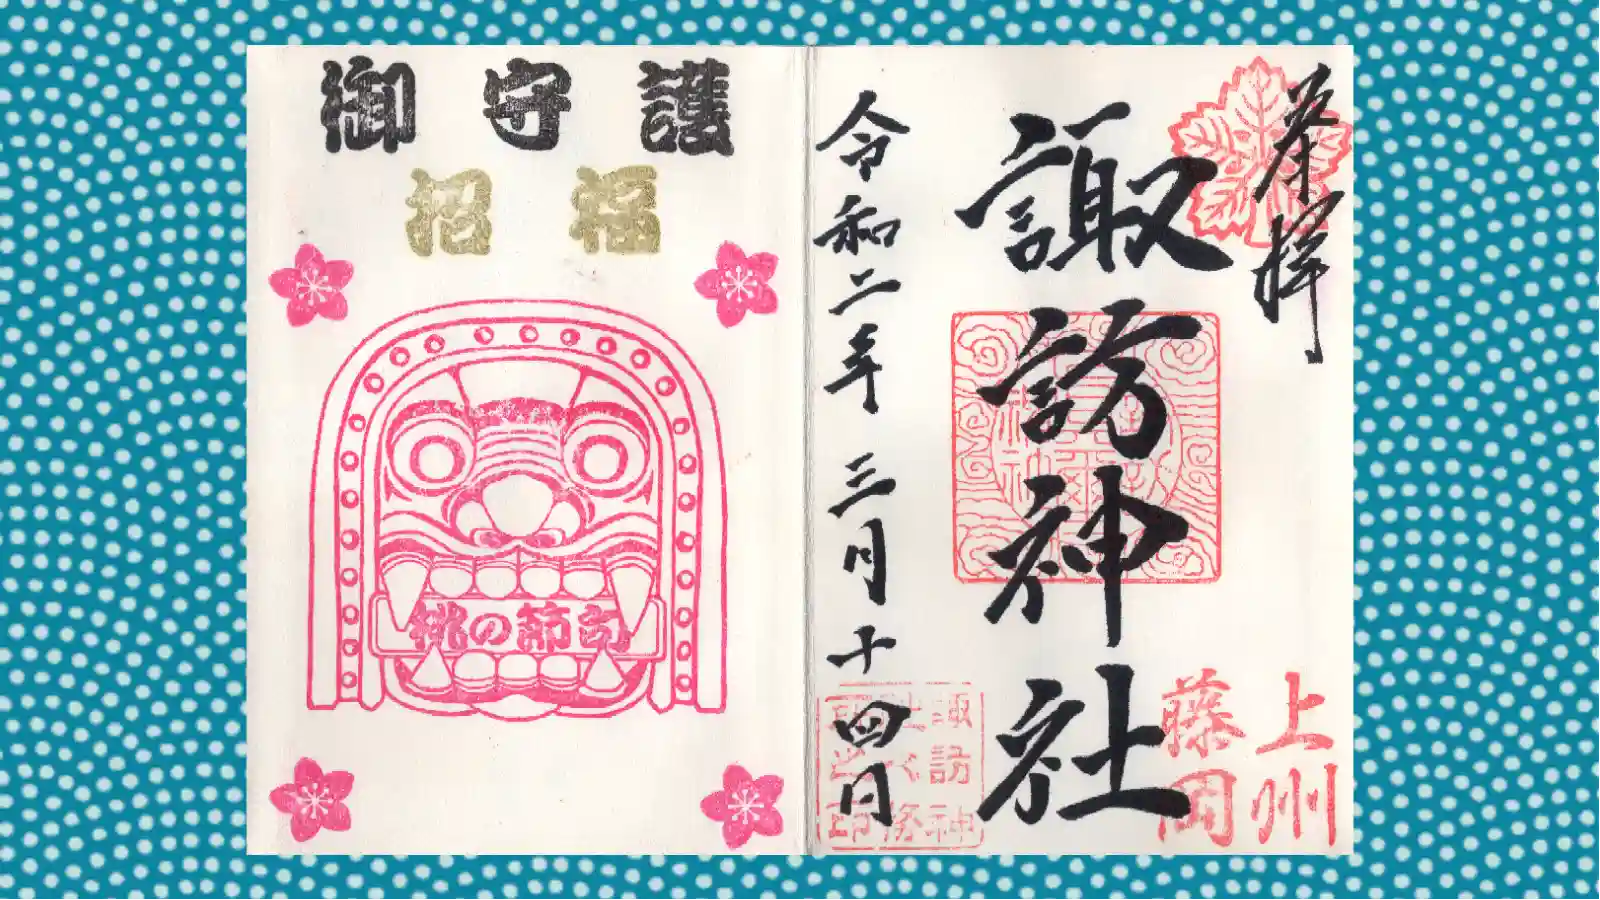 奉拝
上州
藤岡
諏訪神社
令和二年三月十四日
諏訪神
御守護
招福
桃の節句